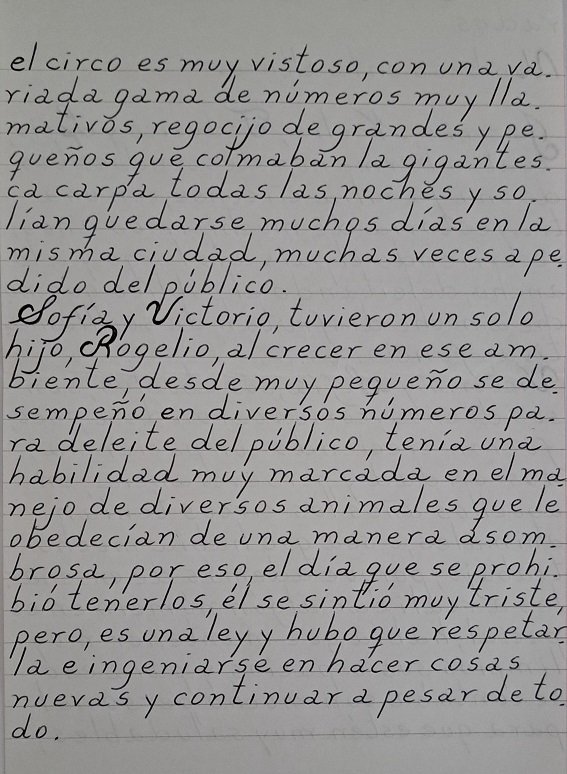 el circo es muy vistoso, con una va.
riada gama de números muy lla.
mativos, regocijo de grandes y pe.
queños que colmaban la gigantes.
ca carpa todas las noches y so.
lían quedarse muchos días en la
misma ciudad, muchas veces a pe.
dido del público.
Sofía y Victorio, tuvieron un solo
hijo, Rogelio, al crecer en ese am.
biente, desde muy pequeño se de.
sempeñó en diversos números pa.
ra deleite del público, tenía una
habilidad muy marcada en el ma.
nejo de diversos animales que le
obedecían de una manera asom.
brosa, por eso, el día que se prohi.
bió tenerlos, él se sintió muy triste,
pero, es una ley y hubo que respetar.
la e ingeniarse en hacer cosas
nuevas y continuar a pesar de to.
do.